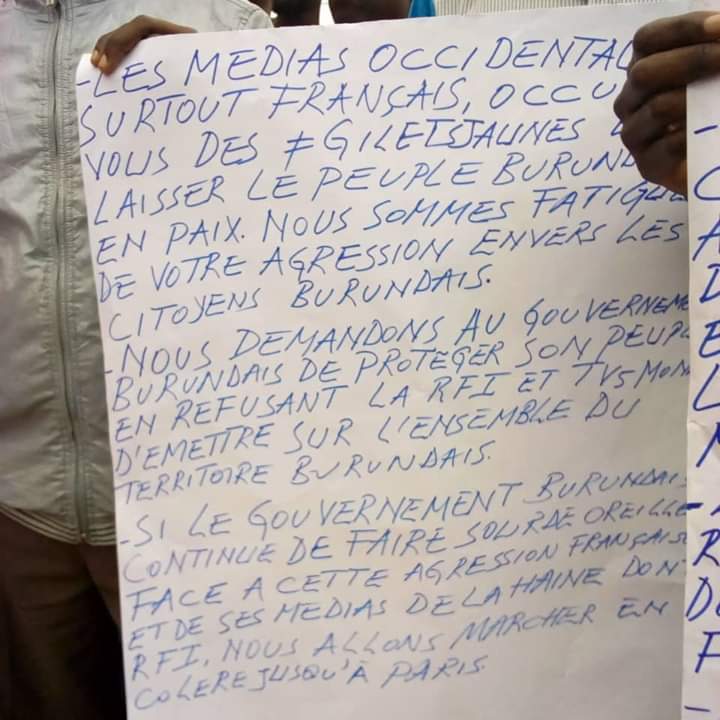 -LES MEDIAS OCCIDENTAU
SURTOUT FRANÇAIS, OCCU
VOUS DES #GILETSJAUNES
LAISSER LE PEUPLE BURUND
EN PAIX. NOUS SOMMES FATIGUE
DE VOTRE AGRESSION ENVERS LES
CITOYENS BURUNDAIS.
-NOUS DEMANDONS AU GOUVERNEME
BURUNDAIS DE PROTEGER SON PEUPL
EN REFUSANT LA RFI ET TV5 MON
D'EMETTRE SUR L'ENSEMBLE DU
TERRITOIRE BURUNDAIS.
-SI LE GOUVERNEMENT BURUNDAIS
CONTINUE DE FAIRE SOURDE OREILLE
FACE A CETTE AGRESSION FRANÇAISE
ET DE SES MEDIAS DE LA HAINE DON
RFI, NOUS ALLONS MARCHER EN
COLERE JUSQU'À PARIS